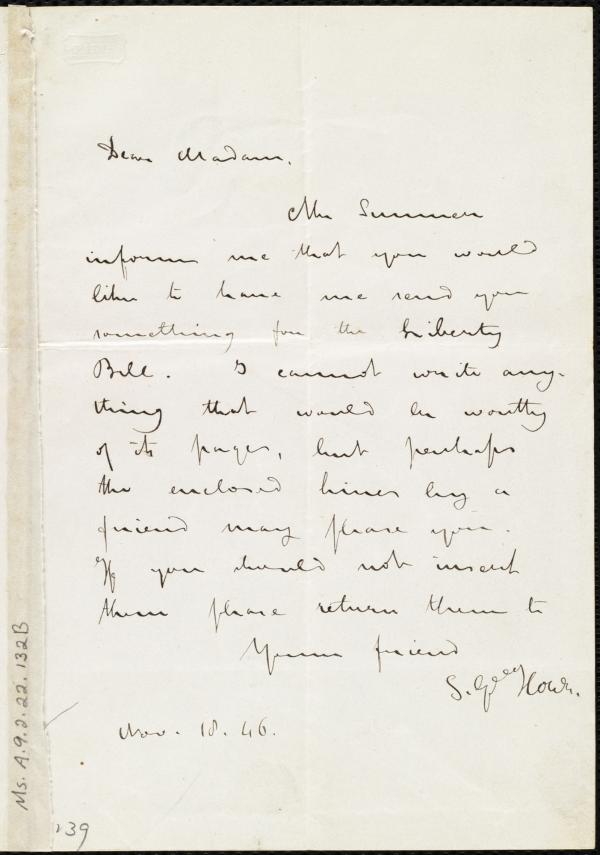 Dear Madam.
Mr Sumner
informs me that you would
like to have me send you
something for the Liberty
Bell. I cannot write any-
thing that would be worthy
of its pages, but perhaps
the enclosed lines by a
friend may please you.
If you should not insert
them please return them to
Your friend
S. G. Howe.
Nov. 18. 46.
Ms. A.9.2.22.132B
139